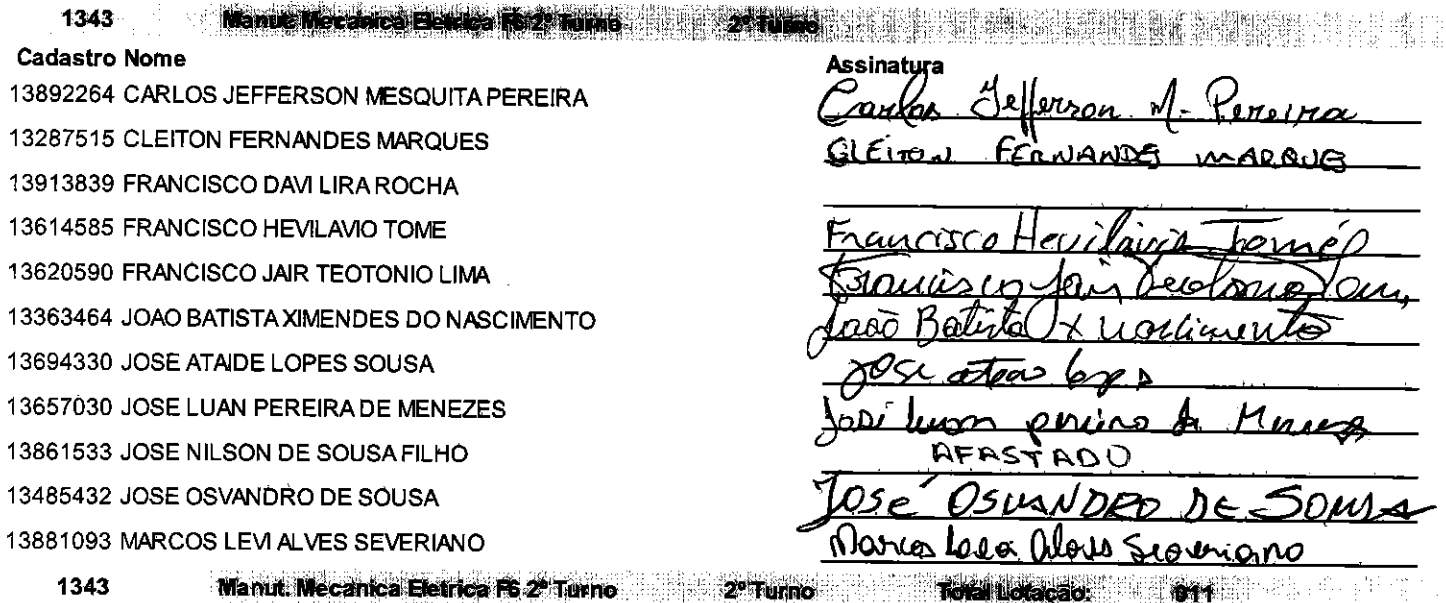 1343 Manut. Mecanica Eletrica F6 2º Turno 2º Turno
Cadastro Nome Assinatura
13892264 CARLOS JEFFERSON MESQUITA PEREIRA Carlos Jefferson M. Pereira
13287515 CLEITON FERNANDES MARQUES CLEITON FERNANDES MARQUES
13913839 FRANCISCO DAVI LIRA ROCHA
13614585 FRANCISCO HEVILAVIO TOME Francisco Hevilavio Tomé
13620590 FRANCISCO JAIR TEOTONIO LIMA Francisco Jair Teotonio
13363464 JOAO BATISTA XIMENDES DO NASCIMENTO João Batista X nascimento
13694330 JOSE ATAIDE LOPES SOUSA Jose
13657030 JOSE LUAN PEREIRA DE MENEZES José luan pereira de
13861533 JOSE NILSON DE SOUSA FILHO AFASTADO
13485432 JOSE OSVANDRO DE SOUSA JOSÉ OSVANDRO DE SOUSA
13881093 MARCOS LEVI ALVES SEVERIANO Marcos Alves Severiano
1343 Manut. Mecanica Eletrica F6 2º Turno 2º Turno Total Lotação: 011